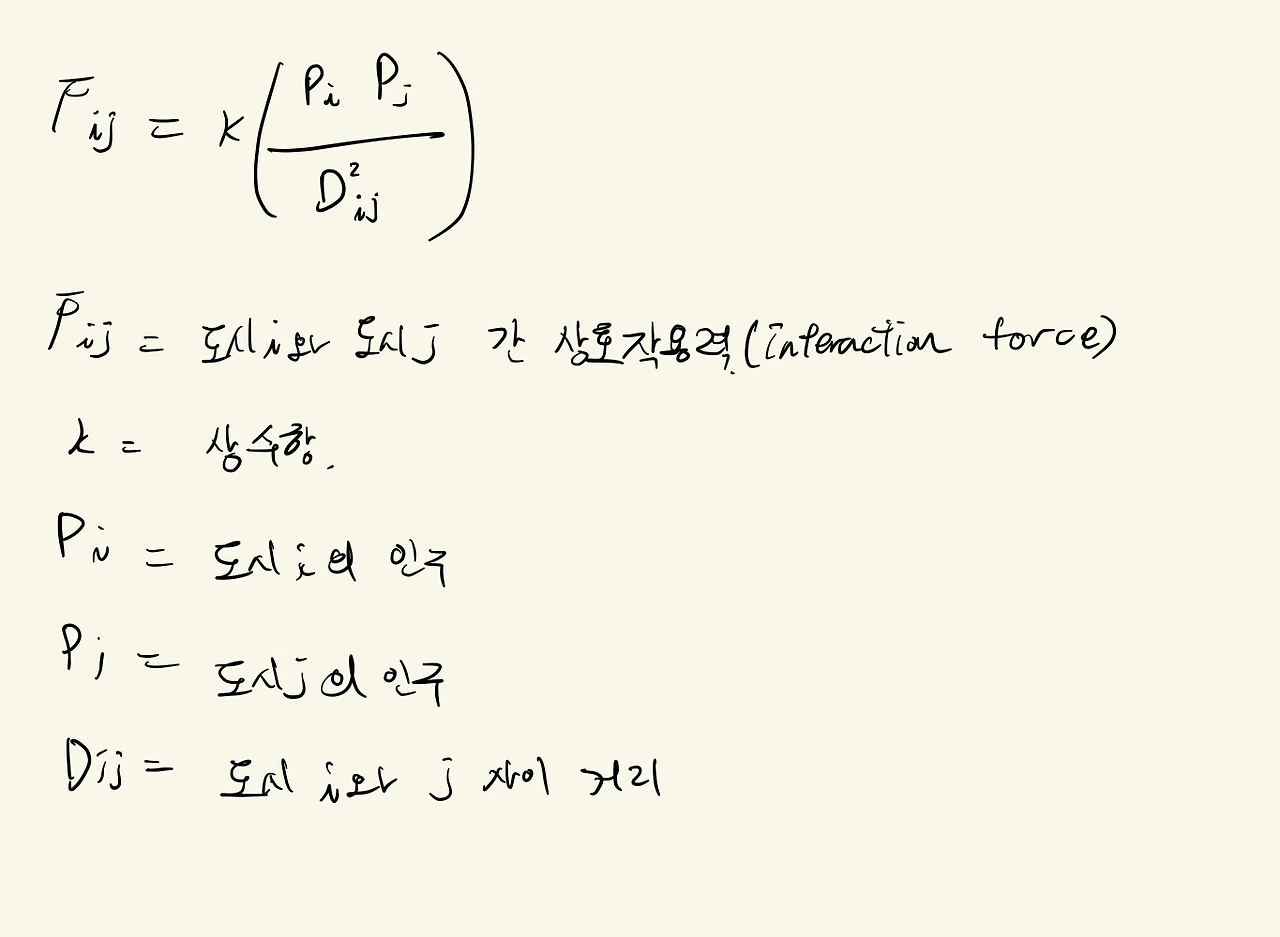 F_ij = k( P_i P_j / D²_ij )
F_ij = 도시 i와 도시 j 간 상호작용력.(interaction force)
k = 상수항.
P_i = 도시 i의 인구
P_j = 도시 j의 인구
D_ij = 도시 i와 j 사이 거리